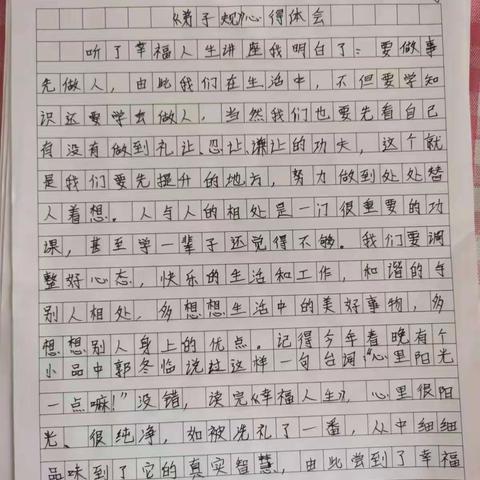 《弟子规》心得体会
听了幸福人生讲座我明白了：要做事
先做人，由此我们在生活中，不但要学知
识还要学会做人，当然我们也要先看自己
有没有做到礼让、忍让、谦让的功夫，这个就
是我们要先提升的地方，努力做到处处替
人着想。人与人的相处是一门很重要的功
课，甚至学一辈子还觉得不够。我们要调
整好心态，快乐的生活和工作，和谐的与
别人相处，多想想生活中的美好事物，多
想想别人身上的优点。记得今年春晚有个
小品中郭冬临说过这样一句台词“心里阳光
一点嘛！”没错，读完《幸福人生》，心里很阳
光、很纯净，如被洗礼了一番，从中细细
品味到了它的真实智慧，由此尝到了幸福